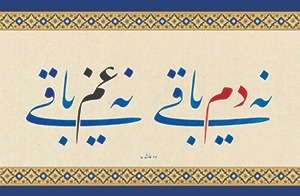 نه دم باقی نه غم باقی